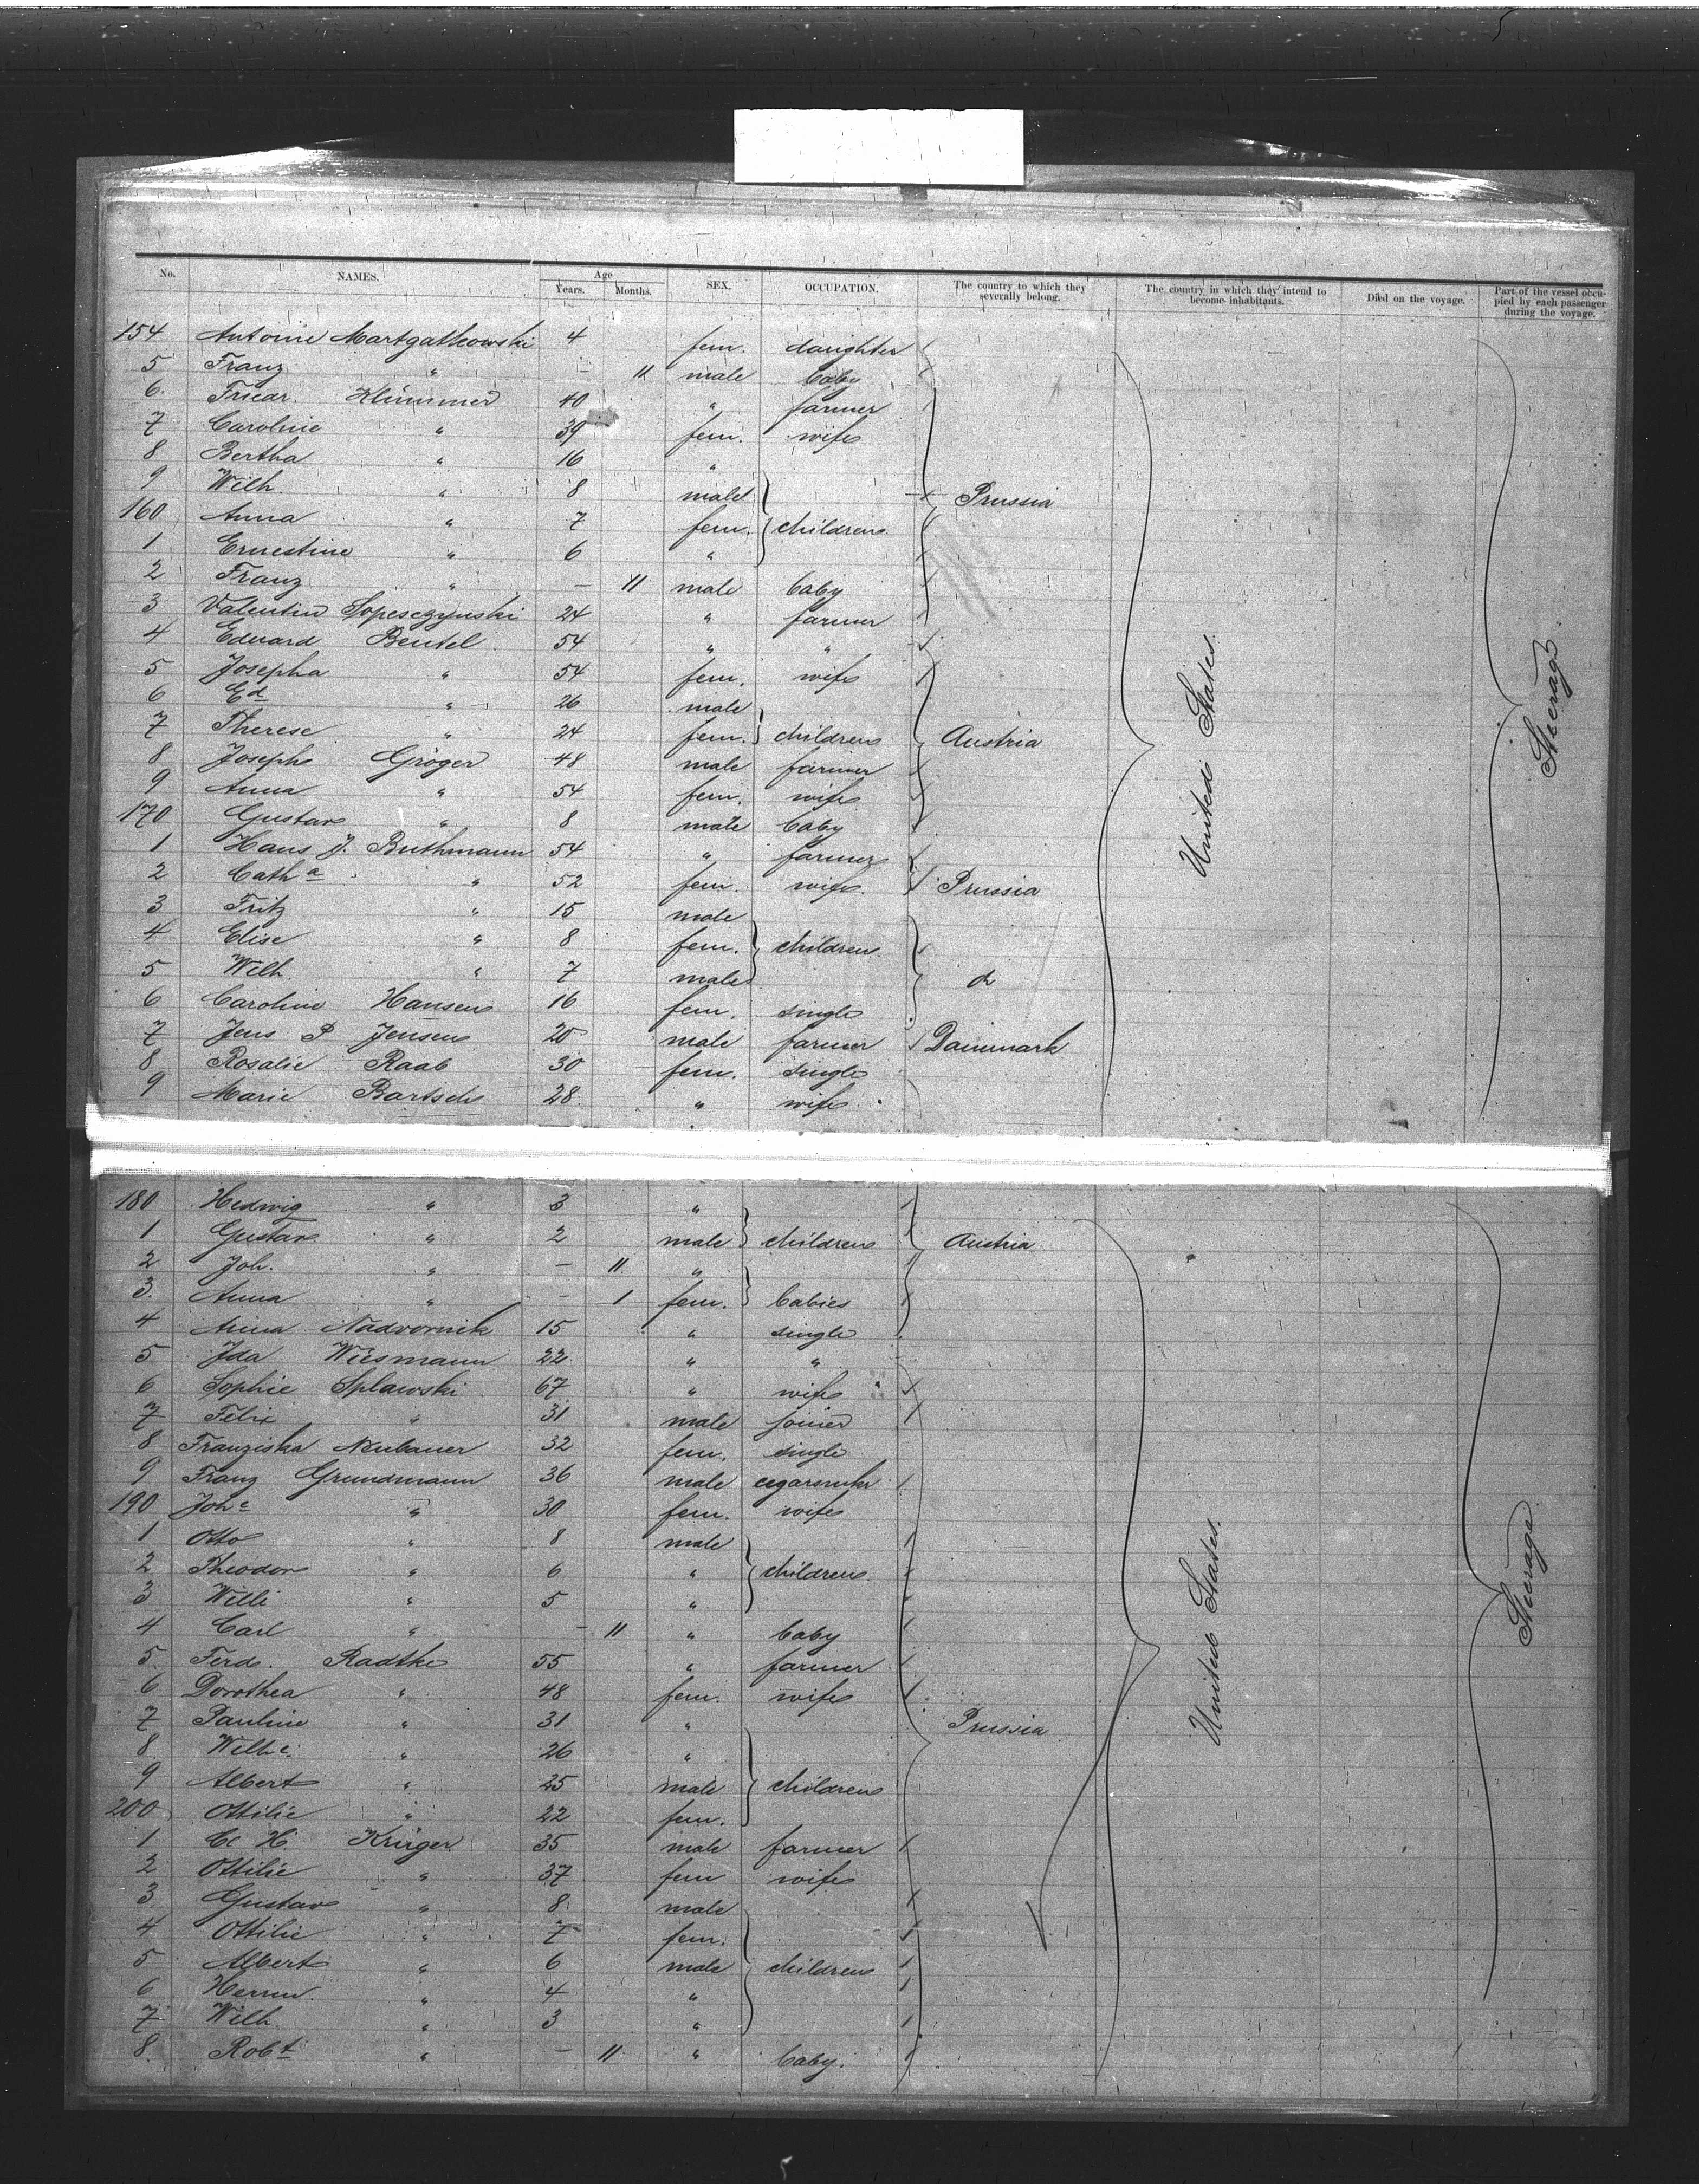 No. NAMES. Age Years. Months. SEX. OCCUPATION. The country to which they severally belong. The country in which they intend to become inhabitants. Died on the voyage. Part of the vessel occupied by each passenger during the voyage.
154 Antonie Martgatkowski 4 fem. daughter
5 Franz " – 11 male baby
6. Friedr. Klimmer 40 " farmer
7 Caroline " 39 fem. wife
8 Bertha " 16 "
9 Wilh " 8 male Prussia
160 Anna " 7 fem. children
1 Ernestine " 6 "
2 Franz " – 11 male baby
3 Valentin Sopesczynski 24 " farmer
4 Eduard Beutel 54 " "
5 Josepha " 54 fem. wife
6 Ed " 26 male
7 Therese " 24 fem. children Austria
8 Joseph Gröger 48 male farmer
9 Anna " 54 fem. wife
170 Gustav " 8 male baby
1 Hans J. Buthmann 54 " farmer
2 Catha " 52 fem. wife Prussia
3 Fritz " 15 male
4 Elise " 8 fem. children
5 Wilh " 7 male do
6 Caroline Hansen 16 fem. single
7 Jens P Jensen 20 male farmer Dainmark
8 Rosalie Raab 30 fem. single
9 Marie Bartsch 28 " wife
United States. Steerage
180 Hedwig " 3 "
1 Gustav " 2 male children Austria
2 Joh. " – 11 "
3. Anna " – 1 fem. babies
4 Anna Nadvornik 15 " single
5 Ida Wiesmann 22 " "
6 Sophie Splawski 67 " wife
7 Felix " 31 male joiner
8 Franziska Neubauer 32 fem. single
9 Franz Grundmann 36 male cegarsmkr
190 Johe " 30 fem. wife
1 Otto " 8 male
2 Theodor " 6 " children
3 Willi " 5 "
4 Carl " – 11 " baby
5 Ferd. Radtke 55 " farmer
6 Dorothea " 48 fem. wife
7 Pauline " 31 " Prussia
8 Wilhe " 26 "
9 Albert " 25 male children
200 Ottilie " 22 fem.
1 C H Krüger 35 male farmer
2 Ottilie " 37 fem wife
3 Gustav " 8 male
4 Ottilie " 7 fem.
5 Albert " 6 male children
6 Herm. " 4 "
7 Wilh " 3 "
8 Robt " – 11 " baby.
United States. Steerage
5